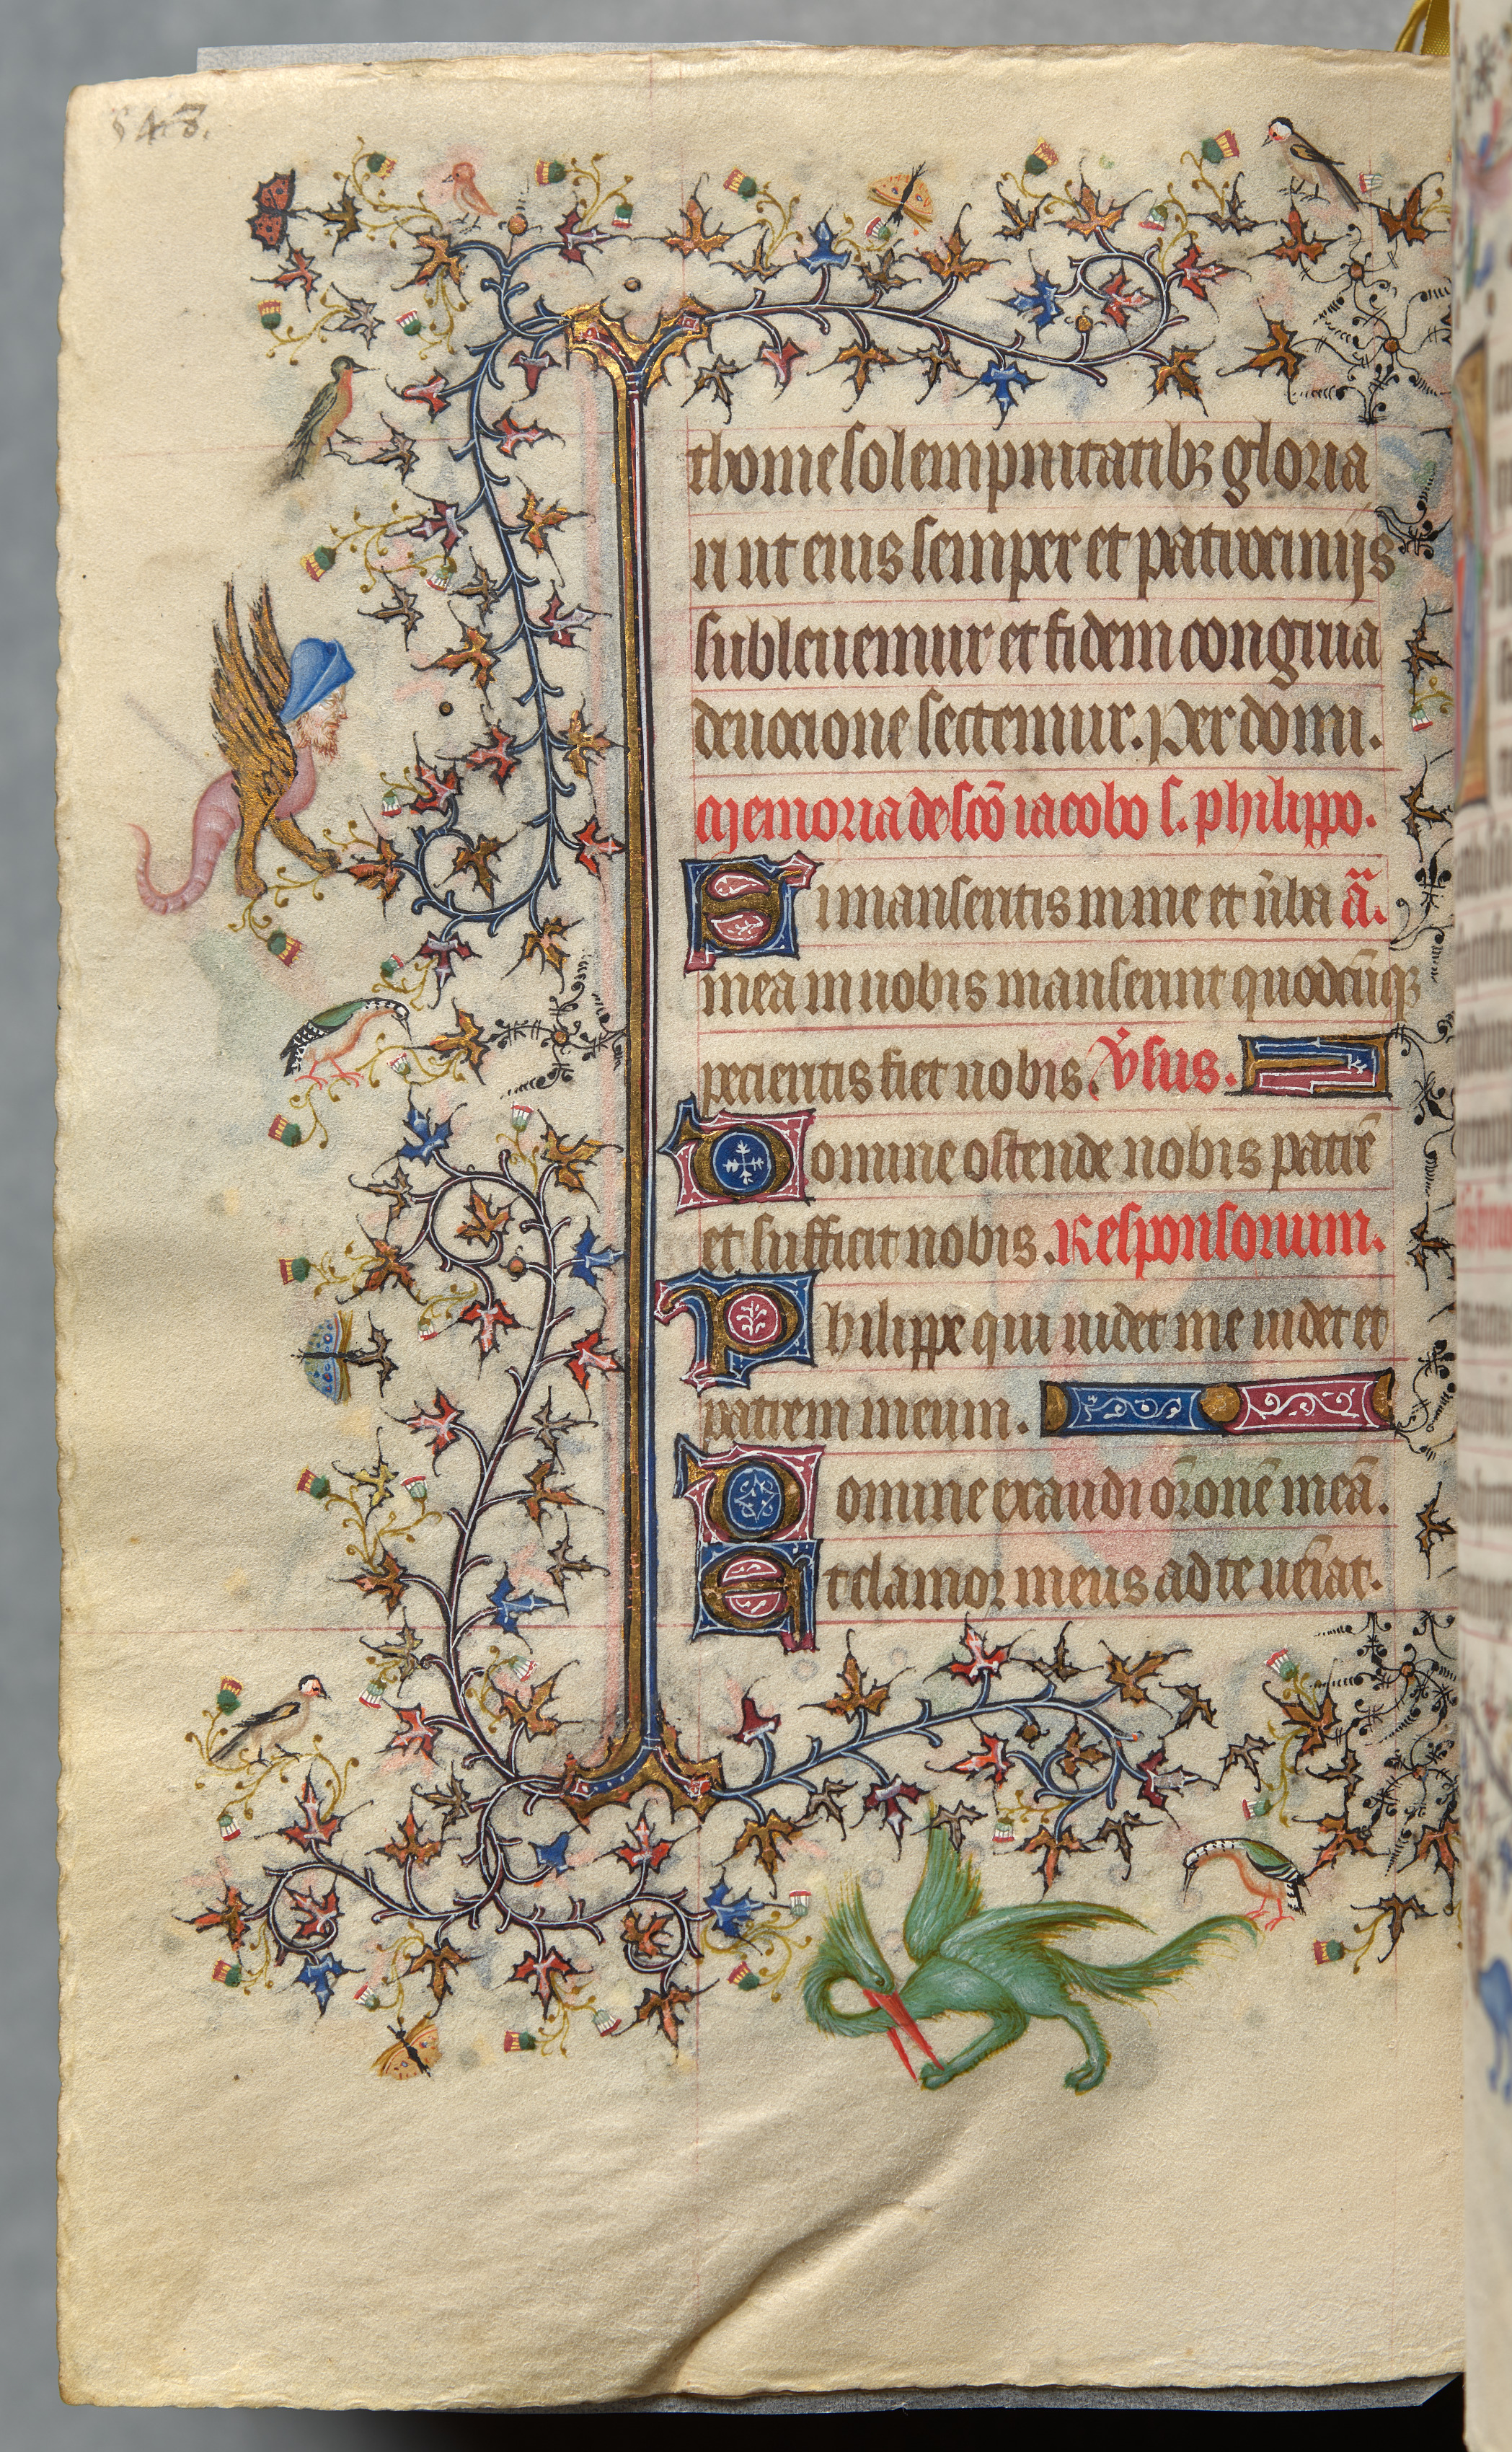 543.
thome solempnitatibꝫ gloria
ri ut eius semper et patrocinijs
subleuemur et fidem congrua
deuocione sectemur. Per domi.
Memoria de sc̄o iacobo s. philippo.
Si manseritis in me et v̄ba ā.
mea in uobis manserint quodcūqꝫ
pecieritis fiet uobis. V̄sus.
Domine ostende nobis patrē
et sufficit nobis. Responsorium.
Philippe qui uidet me uidet et
patrem meum.
Domine exaudi or̄onē meā.
Et clamor meus ad te uēiat.